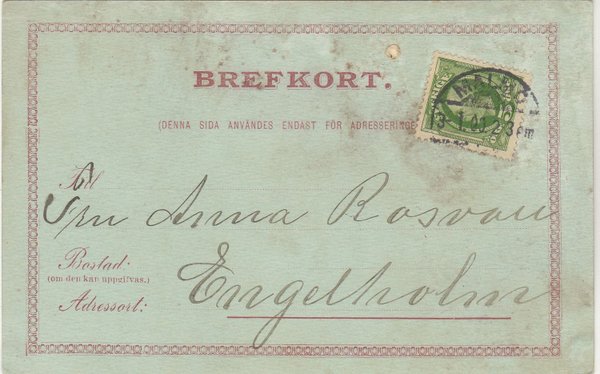 BREFKORT.
(DENNA SIDA ANVÄNDES ENDAST FÖR ADRESSERINGE
MALMÖ
13 1 01 3 em
Till
Anna Rosvall
Bostad:
(om den kan uppgifvas.)
Engelholm
Adressort: